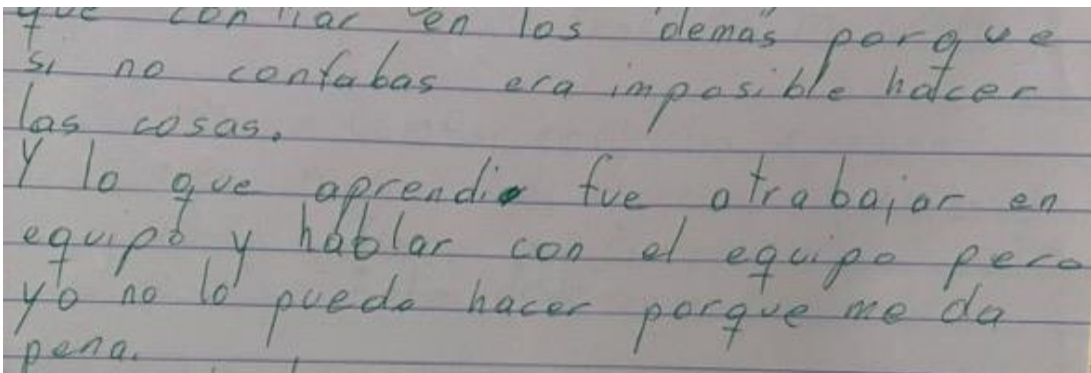 que confiar en los demás porque
si no contabas era imposible hacer
las cosas.
Y lo que aprendi fue a trabajar en
equipo y hablar con el equipo pero
yo no lo puedo hacer porque me da
pena.